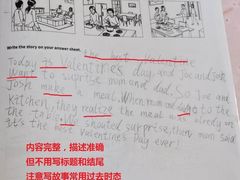 Write the story on your answer sheet.
the best Valentine
Today is Valentines day, and Joe and Josh
Want to suprise mom and dad. So Joe and
Josh make a meal. When mom and dad to the
kitchen, they realize the meal was already on
the table. We shouted surprise, then mom said
it's the best Valentines Day ever!
内容完整，描述准确
但不用写标题和结尾
注意写故事常用过去时态